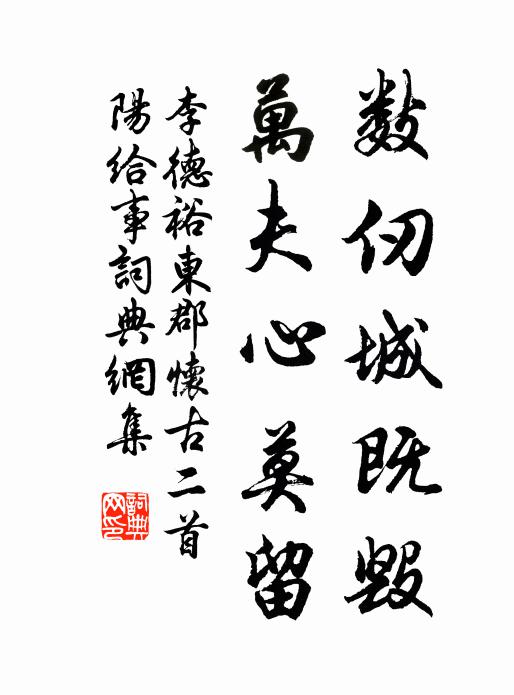 数仞城既毀
萬夫心莫留
李德裕東郡懷古二首
陽給事詞典網集
詞典網印